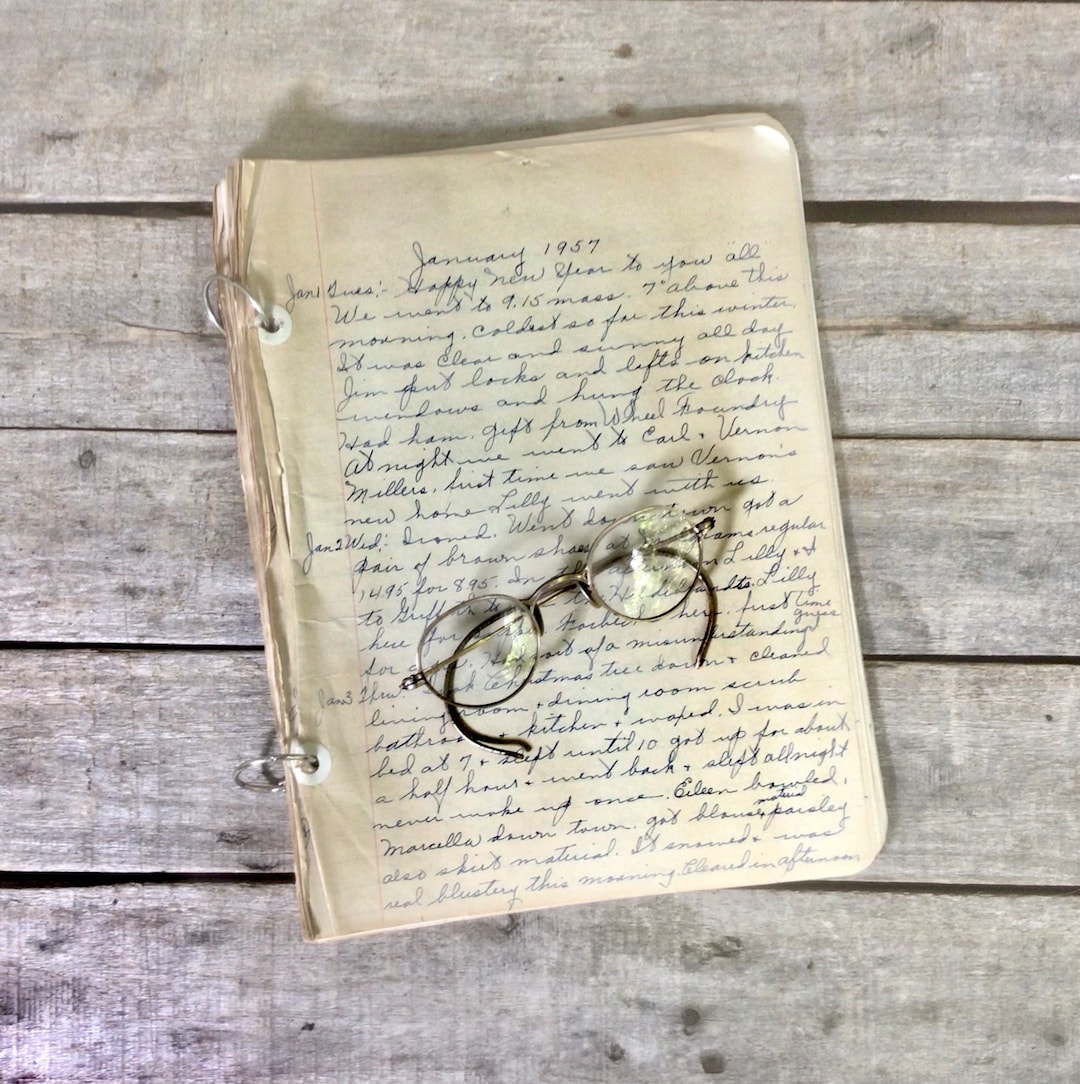 January 1957
Jan 1 Tues;- Happy New Year to you "all"
We went to 9.15 mass. 7° above this
morning, coldest so far this winter.
It was clear and sunny all day
Jim put locks and lifts on kitchen
windows and hung the clock.
Had ham, gift from Wheel Foundry
At night we went to Earl + Vernon
Millers, first time we saw Vernon's
new home Lilly went with us.
Jan 2 Wed; Ironed. Went down town got a
pair of brown shoes at regular
14.95 for 8.95. In the Lilly + I
to
here for here. first time
for a misunderstanding guess
Jan 3 Thur. Christmas tree down + cleaned
living room + dining room scrub
bathroom + kitchen + waxed. I was in
bed at 7 + slept until 10 got up for about
a half hour + went back + slept all night
never woke up once. Eileen bowled,
Marcella down town. got blouse material paisley
also skirt material. It snowed + was
real blustery this morning. Cleared in afternoon